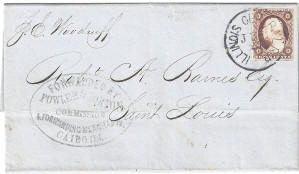 J. C. Woodruff
ILLINOIS
Robt A. Barnes Esq.
FORWARDED BY
COMMISSION
& FORWARDING MERCHANTS
CAIRO, ILL.
Saint Louis